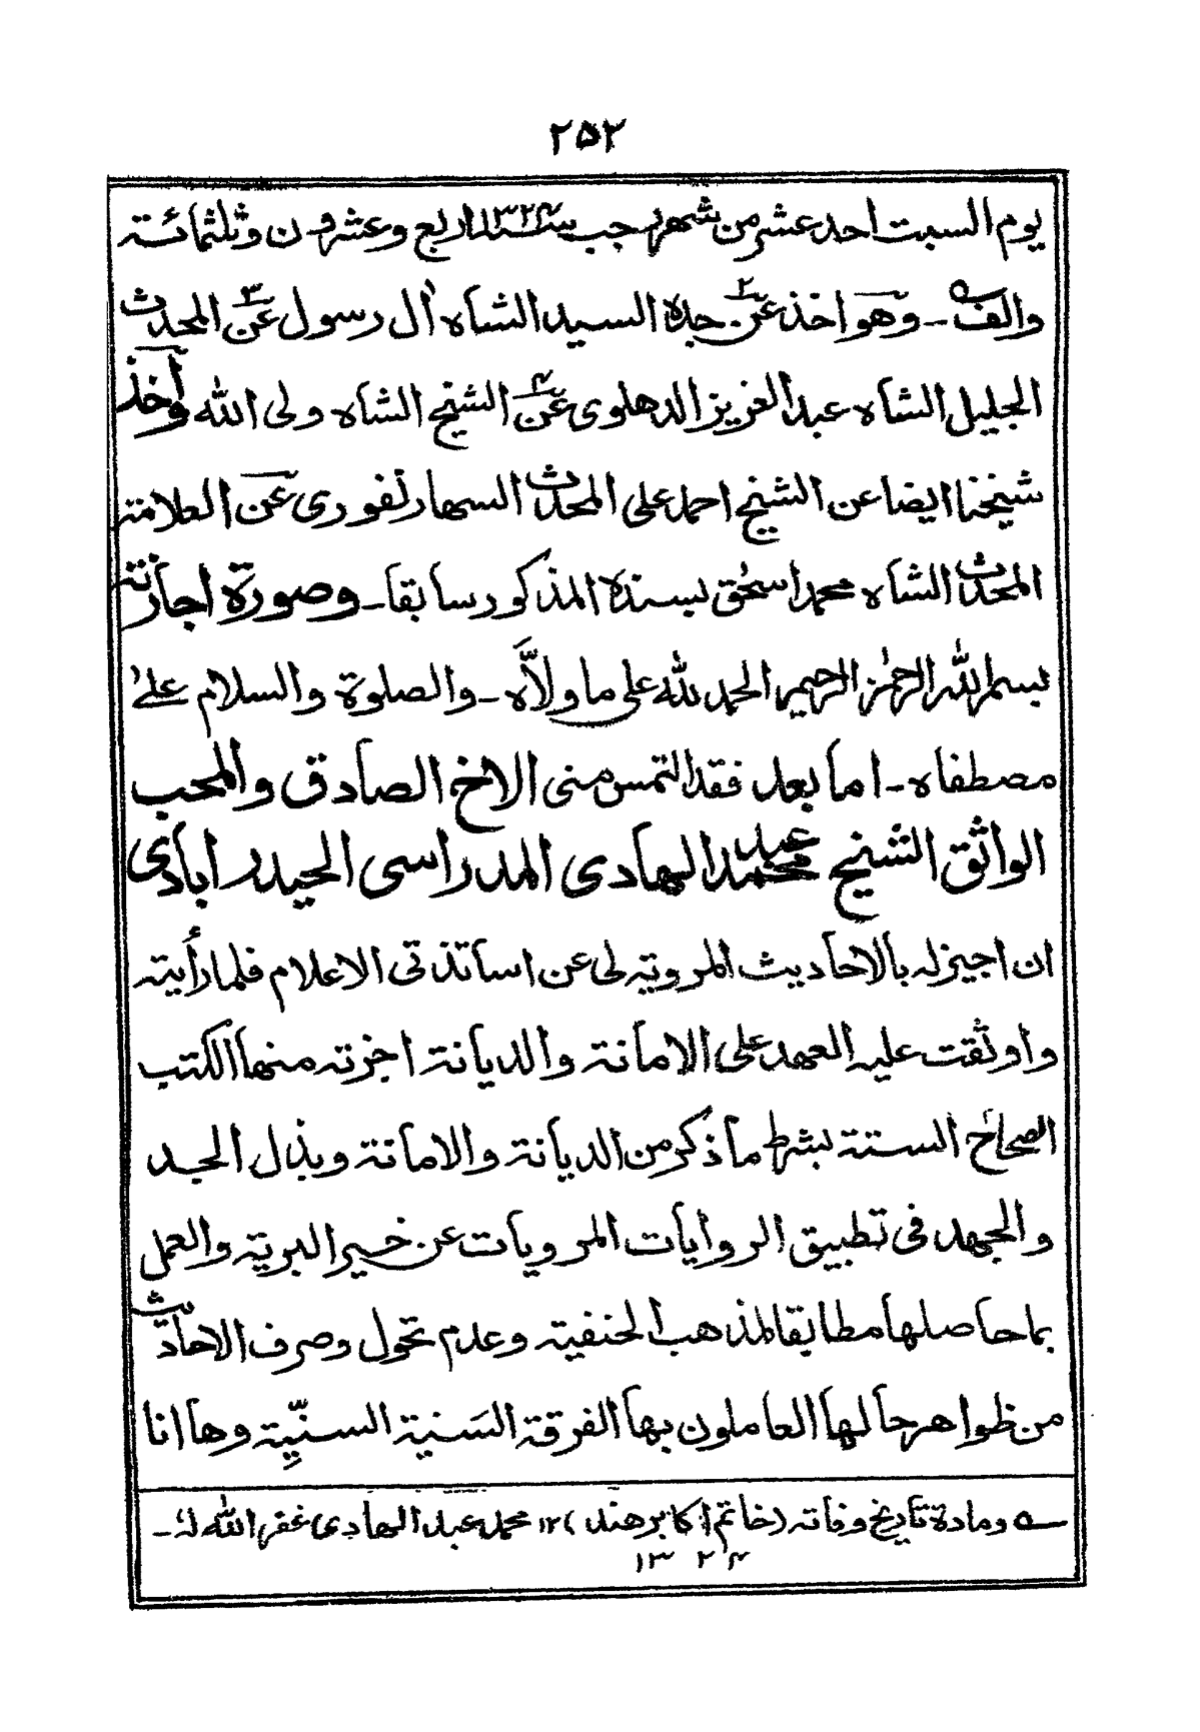 ٢٥٢
يوم السبت احد عشر من شهر رجب سنة ١٣٢٤ اربع وعشرون وثلثمائة
والف ـ وهو اخذ عن جده السيد الشاه اٰل رسول عن المحدث
الجليل الشاه عبد العزيز الدهلوى عن الشيخ الشاه ولى الله وأخذ
شيخنا ايضا عن الشيخ احمد على المحدث السهارنفورى عن العلامة
المحدث الشاه محمد اسحٰق بسنده المذكور سابقا ـ وصورة اجازته
بسم الله الرحمٰن الرحيم الحمد لله على ما ولاَّه ـ والصلوة والسلام علىٰ
مصطفاه ـ اما بعد فقد التمس منى الاخ الصادق والمحب
الواثق الشيخ محمد عبد الهادى المدراسى الحيدر ابادى
ان اجيز له بالاحاديث المروية لى عن اساتذتى الاعلام فلما رأيته
واوثقت عليه العهد على الامانة والديانة اجزته منها الكتب
الصحاح الستة بشرط ما ذكر من الديانة والامانة وبذل الجد
والجهد فى تطبيق الروايات المرويات عن خير البرية والعمل
بما حاصلها مطابقا لمذهب الحنفية وعدم تحول وصرف الاحاديث
من ظواهر حالها العاملون بها الفرقة السَنية السنيِّة وها انا
ه ومادة تاريخ وفاته (خاتم اكابر هند) ١٢ محمد عبد الهادى غفر الله لهٗ ـ
١٣٢٤